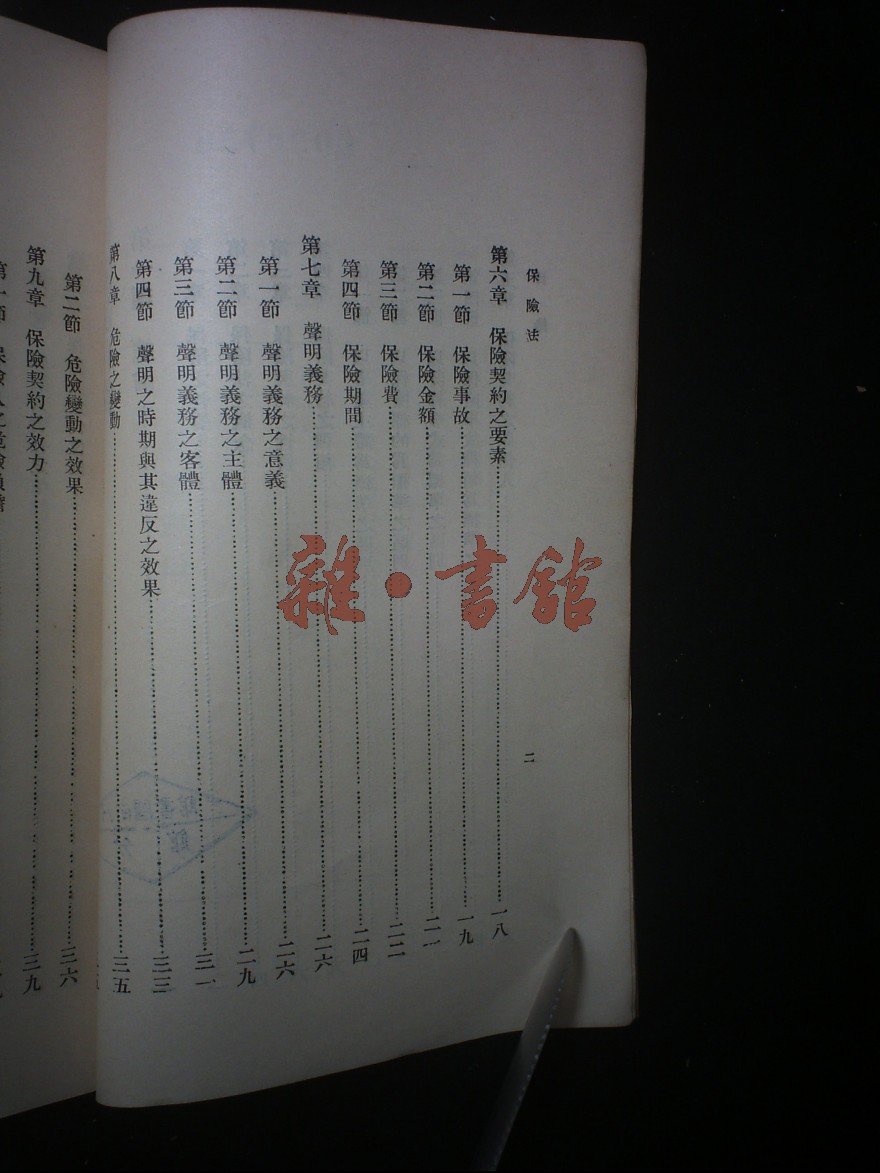 保險法
二
第六章 保險契約之要素……一八
第一節 保險事故……一九
第二節 保險金額……二一
第三節 保險費……二二
第四節 保險期間……二四
第七章 聲明義務……二六
第一節 聲明義務之意義……二六
第二節 聲明義務之主體……二九
第三節 聲明義務之客體……三一
第四節 聲明之時期與其違反之效果……三三
第八章 危險之變動……三五
第二節 危險變動之效果……三六
第九章 保險契約之效力……三九
雜·書館